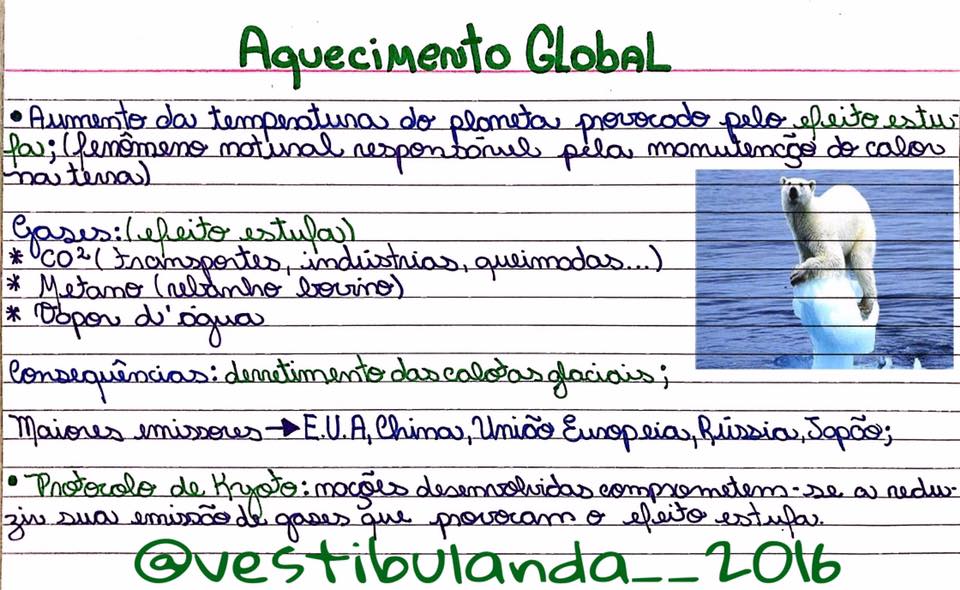 Aquecimento Global
• Aumento da temperatura do planeta provocado pelo efeito estu-
fa; (fenômeno natural responsável pela manutenção do calor
na terra)
Gases: (efeito estufa)
* CO² (transportes, indústrias, queimadas...)
* Metano (rebanho bovino)
* Vapor d'água
Consequências: derretimento das calotas glaciais;
Maiores emissores → E.U.A, China, União Europeia, Rússia, Japão;
• Protocolo de Kyoto: nações desenvolvidas comprometem-se a redu-
zir sua emissão de gases que provocam o efeito estufa.
@vestibulanda__2016